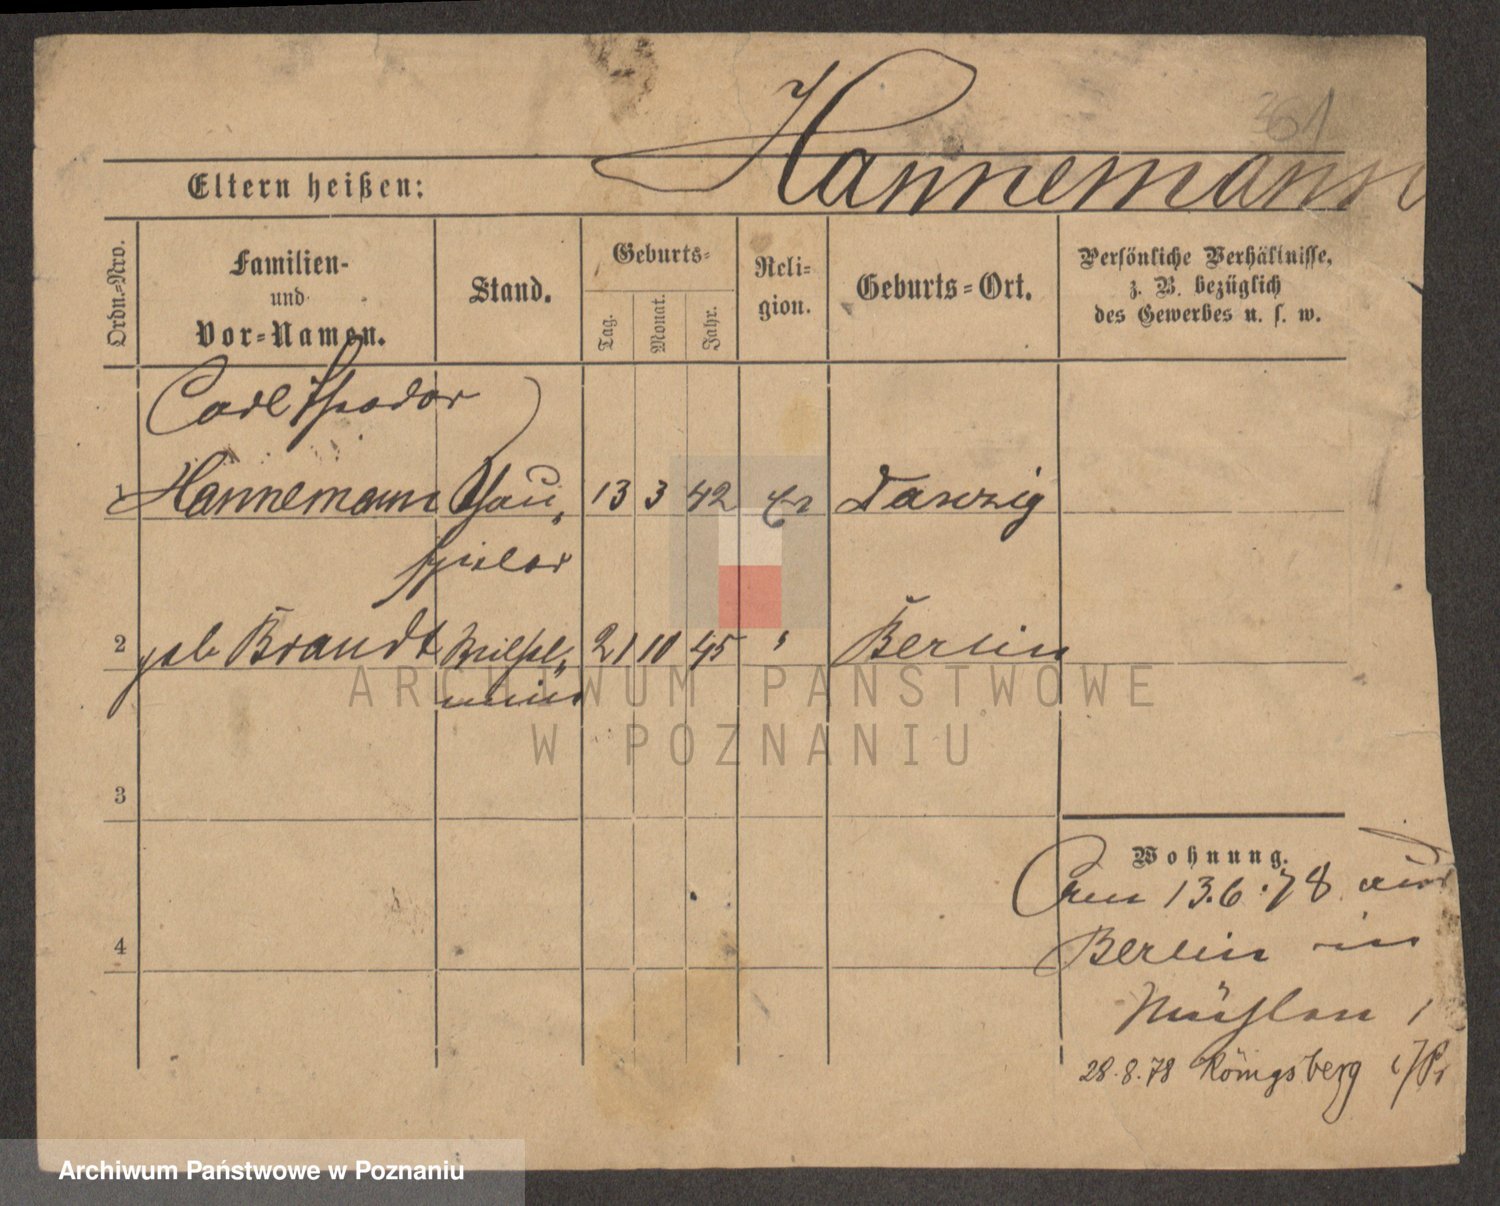 361
Hannemann
Eltern heißen:
Ordn.-Nro.
Familien-
und
Vor-Namen.
Stand.
Geburts-
Tag.
Monat.
Jahr.
Reli-
gion.
Geburts-Ort.
Persönliche Verhältnisse,
z. B. bezüglich
des Gewerbes u. s. w.
Carl Theodor
1 Hannemann Schau- 13 3 42 Ev Danzig
spieler
2 geb Brandt Wilhel- 21 10 45 " Berlin
mine
3
4
Wohnung.
Am 13.6.78 aus
Berlin in
Mühlen 1
28.8.78 Königsberg i/Pr
ARCHIWUM PAŃSTWOWE
W POZNANIU
Archiwum Państwowe w Poznaniu